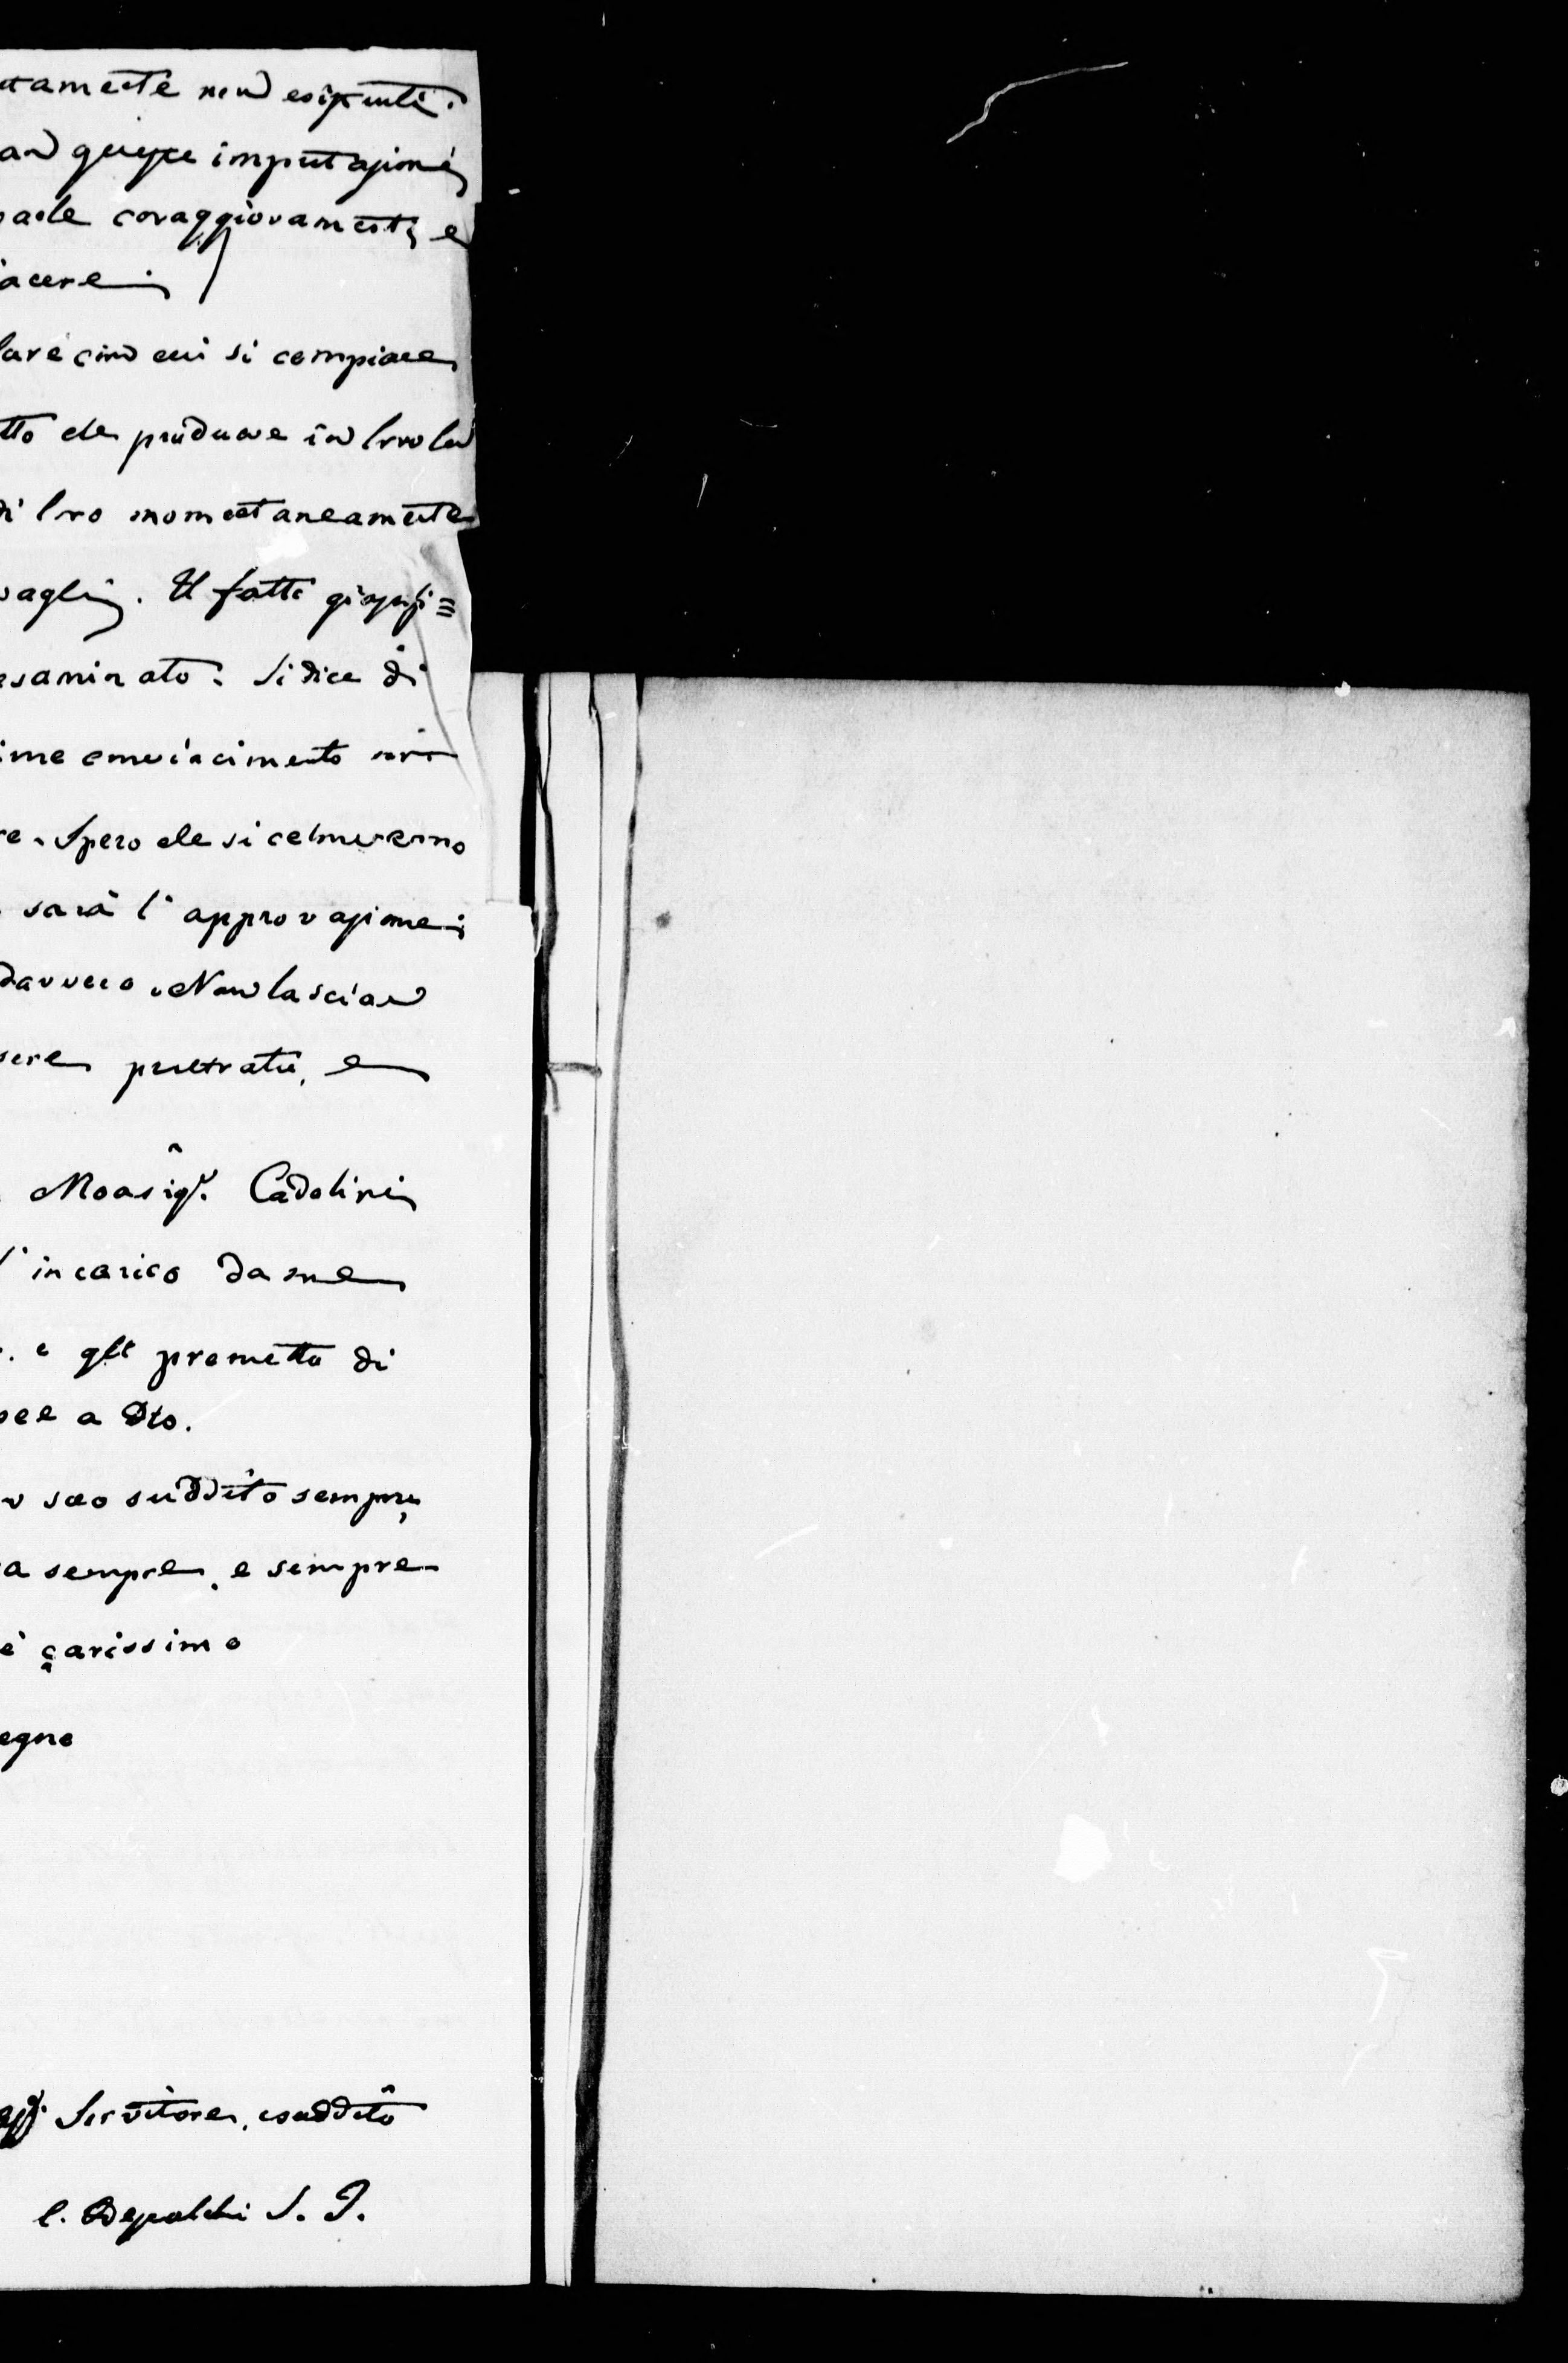 tamente non esistenti.
queste imputazioni
coraggiosamente, e
acere;
lare con cui si compiace
tto che produce in loro la
di loro momentaneamente
vagli. Il fatto
esaminato: si dice di
ime
re. Spero che si
sarà l'approvazione;
davvero. Non lascian
sere e
Monsigr. Cadolini
l'incarico da me
. e gli prometto di
a Dio.
suo suddito sempre,
a sempre, e sempre
è carissimo
egno
Servitore, e suddito
C. Odescalchi S. J.